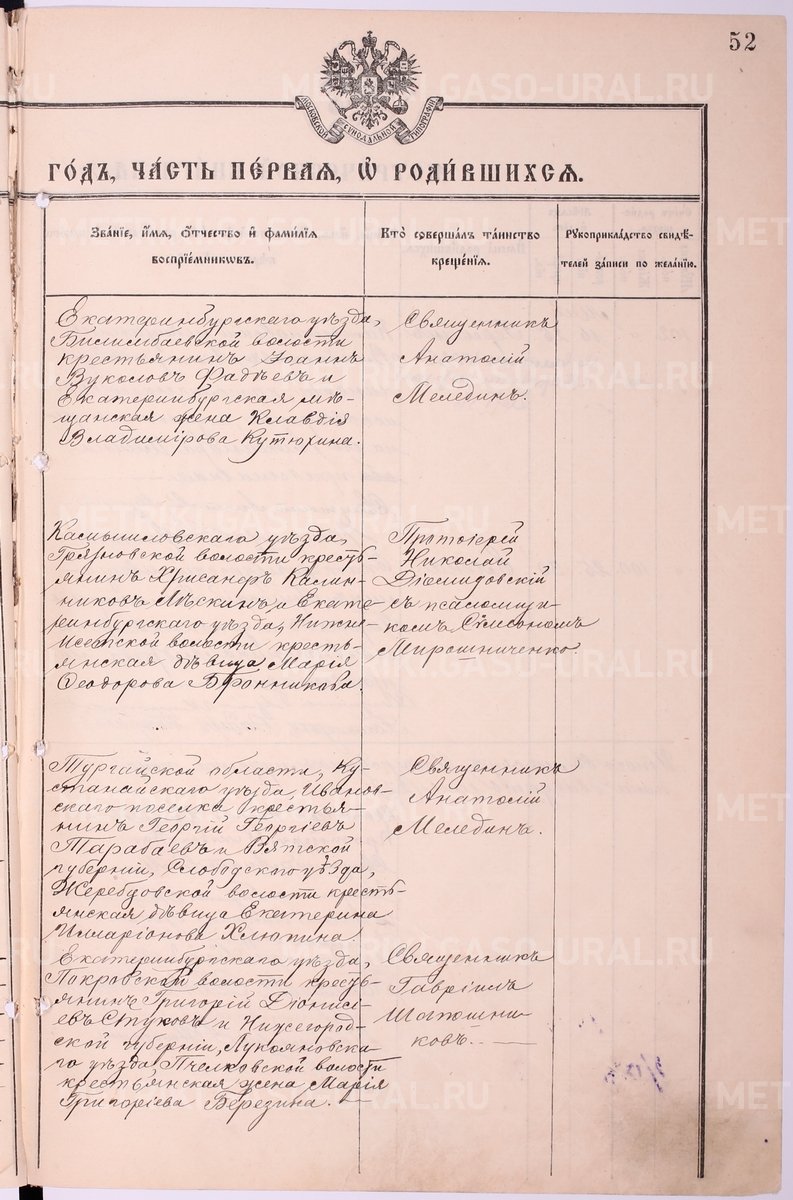 52
МОСКОВСКОЙ СѴНОДАЛЬНОЙ ТИПОГРАФІИ
ГО́ДЪ, ЧА́СТЬ ПЕ́РВАЯ, Ѡ҆ РОДИ́ВШИХСЯ.
Зва́нїе, и҆́мя, ѻ҆́тчество и҆ фами́лїя
воспрїе́мниковъ.
Кто̀ соверша́лъ та́инство
креще́нїя.
Рꙋкоприкла́дство свидѣ́-
телей за́писи по жела́нїю.
Екатеринбургскаго уѣзда,
Билимбаевской волости
крестьянинъ Іоаннъ
Вуколовъ Фадѣевъ и
Екатеринбургская мѣ-
щанская жена Клавдія
Владимірова Кутюхина.
Священникъ
Анатолій
Мелединъ.
Камышловскаго уѣзда,
Грязновской волости кресть-
янинъ Хрисанфъ Калин-
никовъ Мѣскинъ и Екате-
ринбургскаго уѣзда, Нижне-
Исетской волости кресть-
янская дѣвица Марія
Ѳеодорова Бронникова.
Протоіерей
Николай
Діомидовскій
съ псаломщи-
комъ Симеономъ
Мирошниченко.
Тургайской области, Ку-
станайскаго уѣзда, Иванов-
скаго поселка крестья-
нинъ Георгій Георгіевъ
Тарабаевъ и Вятской
губерніи, Слободскаго уѣзда,
Жеребцовской волости кресть-
янская дѣвица Екатерина
Илларіонова Хлюпина.
Священникъ
Анатолій
Мелединъ.
Екатеринбургскаго уѣзда,
Покровской волости кресть-
янинъ Григорій Діонисі-
евъ Стуковъ и Нижегород-
ской губерніи, Лукояновска-
го уѣзда, Пчелковской волости
крестьянская жена Марія
Григоріева Березина.
Священникъ
Гавріилъ
Шапошни-
ковъ.
METRIKI.GASO-URAL.RU